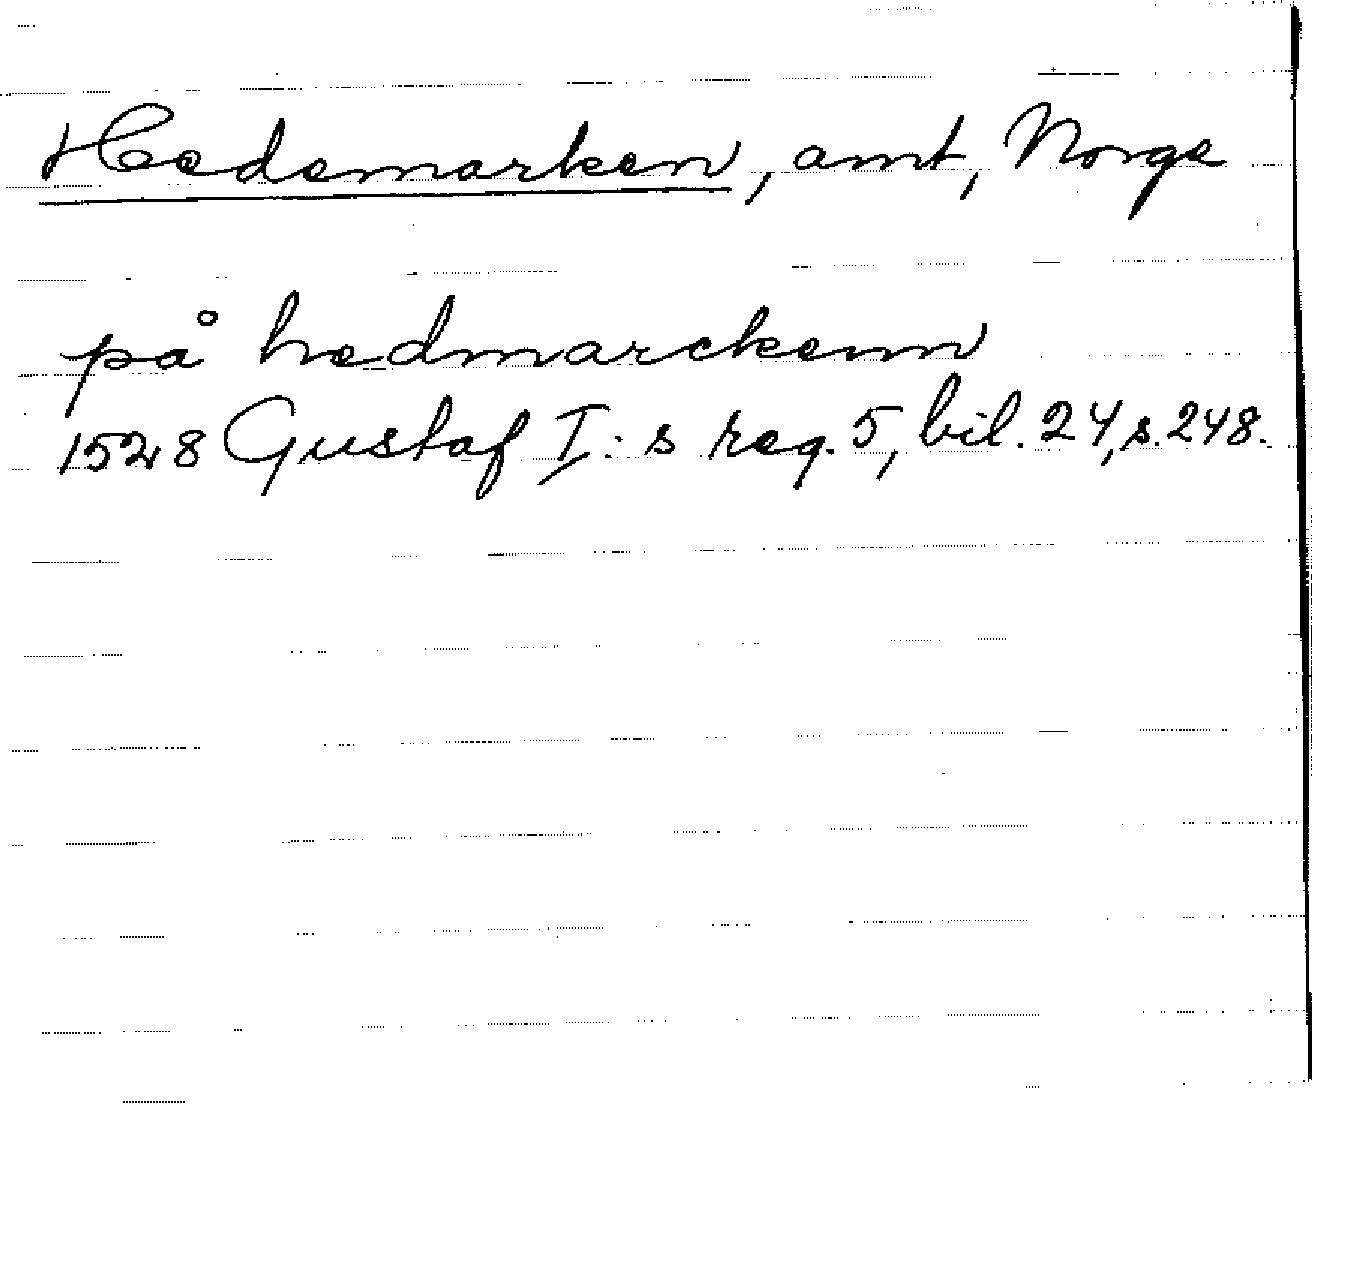 Hedemarken, amt, Norge
på hedmarckenn
1528 Gustaf I:s reg. 5, bil. 24, s. 248.